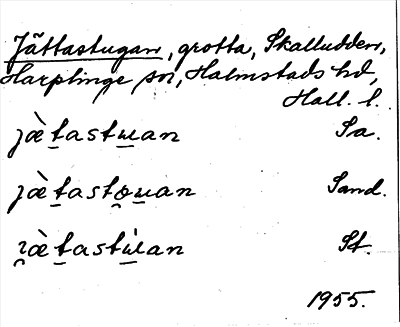 Jättastugan, grotta, Skalludden,
Harplinge sn, Halmstads hd,
Hall. l.
jæ̀t̲astu̲an Sa.
jæ̀t̲asto̯u̲an Sand.
ʒ̯æ̀t̲astù̲an St.
1955.